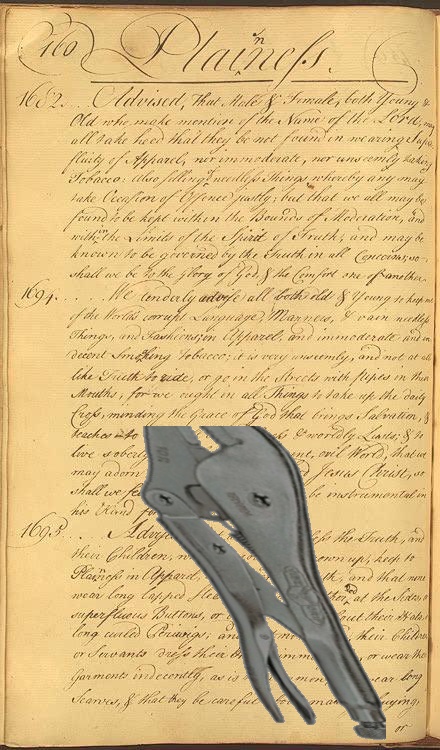 160
Plainness.
1682... Advised, that Male & Female, both Young &
Old who make mention of the Name of the Lord, may
all take heed that they be not found in wearing Supe
fluity of Apparel, nor immoderate, nor unseemly taking
Tobacco: Also selling needless Things whereby any may
take Occasion of Offence justly; but that we all may be
found to be kept within the Bounds of Moderation, and
within the Limits of the Spirit of Truth; and may be
known to be governed by the Truth in all Concerns, so
shall we be to the Glory of God, & the Comfort one of another.
1694..... We tenderly advise all both old & Young to keep out
of the World's corrupt Language, Manners, & vain needless
Things, and Fashions in Apparel; and immoderate and in
decent Smoking Tobacco; it is very unseemly, and not at all
like Truth to ride, or go in the Streets with pipes in their
Mouths, for we ought in all Things to take up the daily
Cross, minding the Grace of God that brings Salvation, &
teaches us to & worldly Lusts; & to
live soberly evil World, that we
may adorn Jesus Christ, so
shall we be instrumental in
his Hand for
1695... Advised the Truth, and
their Children, own up, keep to
Plainness in Apparel, and that none
wear long lapped at the Sides, or
superfluous Buttons, or about their Hats, or
long curled Periwigs, and no their Children
or Servants dress their or wear their
Garments indecently, as is wear long
Scarves, & that they be careful buying,
or